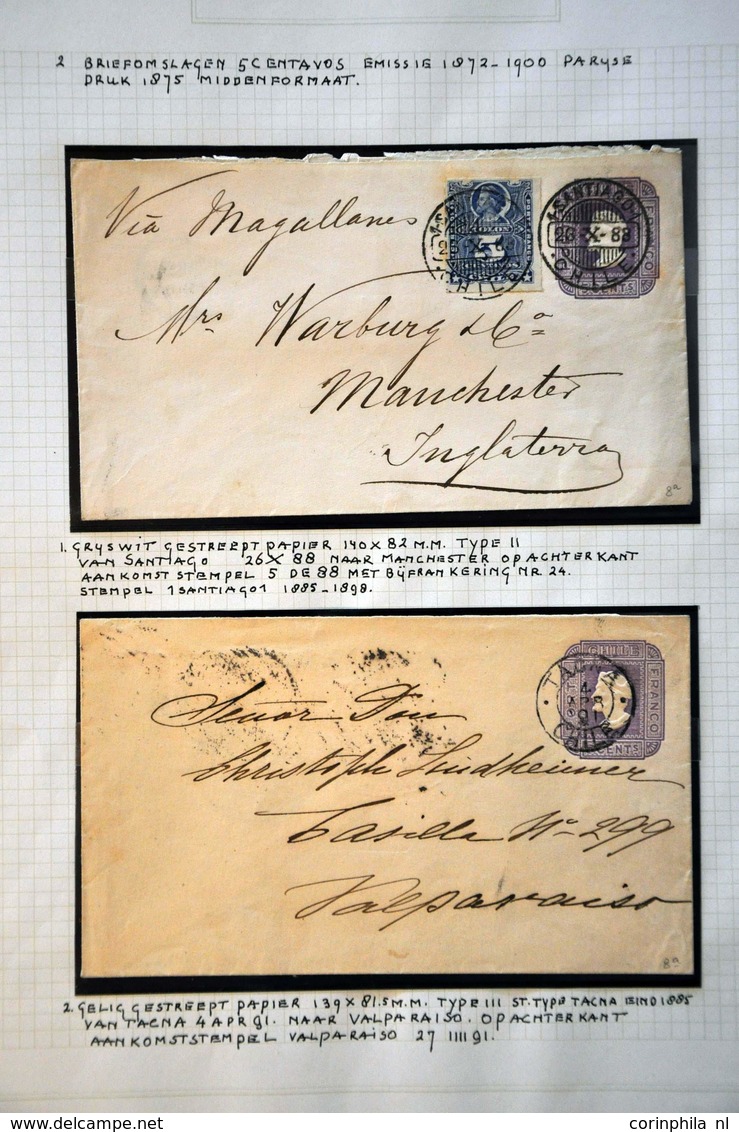 2 BRIEFOMSLAGEN 5 CENTAVOS EMISSIE 1872-1900 PARYSE
DRUK 1875 MIDDENFORMAAT.
SANTIAGO
26-X-88
CHILE
Via Magallanes
CENTS.
Mrs Warburg & Co
Manchester
Inglaterra
8a
1. GRYSWIT GESTREEPT PAPIER 140 X 82 M.M. TYPE II
VAN SANTIAGO 26 X 88 NAAR MANCHESTER OP ACHTERKANT
AANKOMST STEMPEL 5 DE 88 MET BIJFRANKERING NR. 24.
STEMPEL 1 SANTIAGO 1 1885-1898.
CHILE
TACNA
FRANCO
CENTS
Señor Don
Christoph Lindheimer
Casilla No 299
Valparaiso
8a
2. GELIG GESTREEPT PAPIER 139 X 81.5 M.M. TYPE III ST. TYPE TACNA EIND 1885
VAN TACNA 4 APR 91. NAAR VALPARAISO. OP ACHTERKANT
AANKOMSTSTEMPEL VALPARAISO 27 IIII 91.
corinphila nl